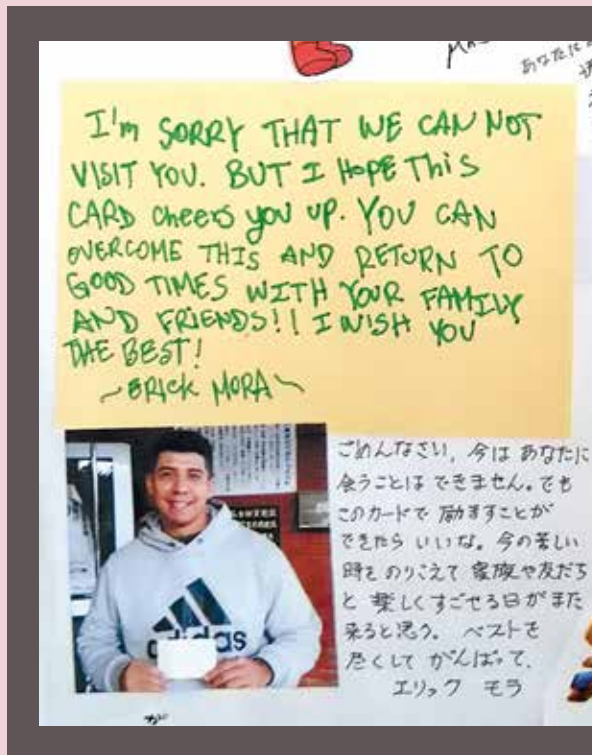 あなたに
I'm SORRY THAT WE CAN NOT
VISIT YOU. BUT I HOPE THiS
CARD CHEERS YOU UP. YOU CAN
OVERCOME THIS AND RETURN TO
GOOD TIMES WITH YOUR FAMILY
AND FRIENDS!! I WISH YOU
THE BEST!
~ERICK MORA~
adidas
ごめんなさい, 今は あなたに
会うことは できません。でも
このカードで 励ますことが
できたら いいな。今の苦しい
時を のりこえて 家族や友だち
と 楽しくすごせる日がまた
来ると思う。 ベストを
尽くして がんばって、
エリック モラ